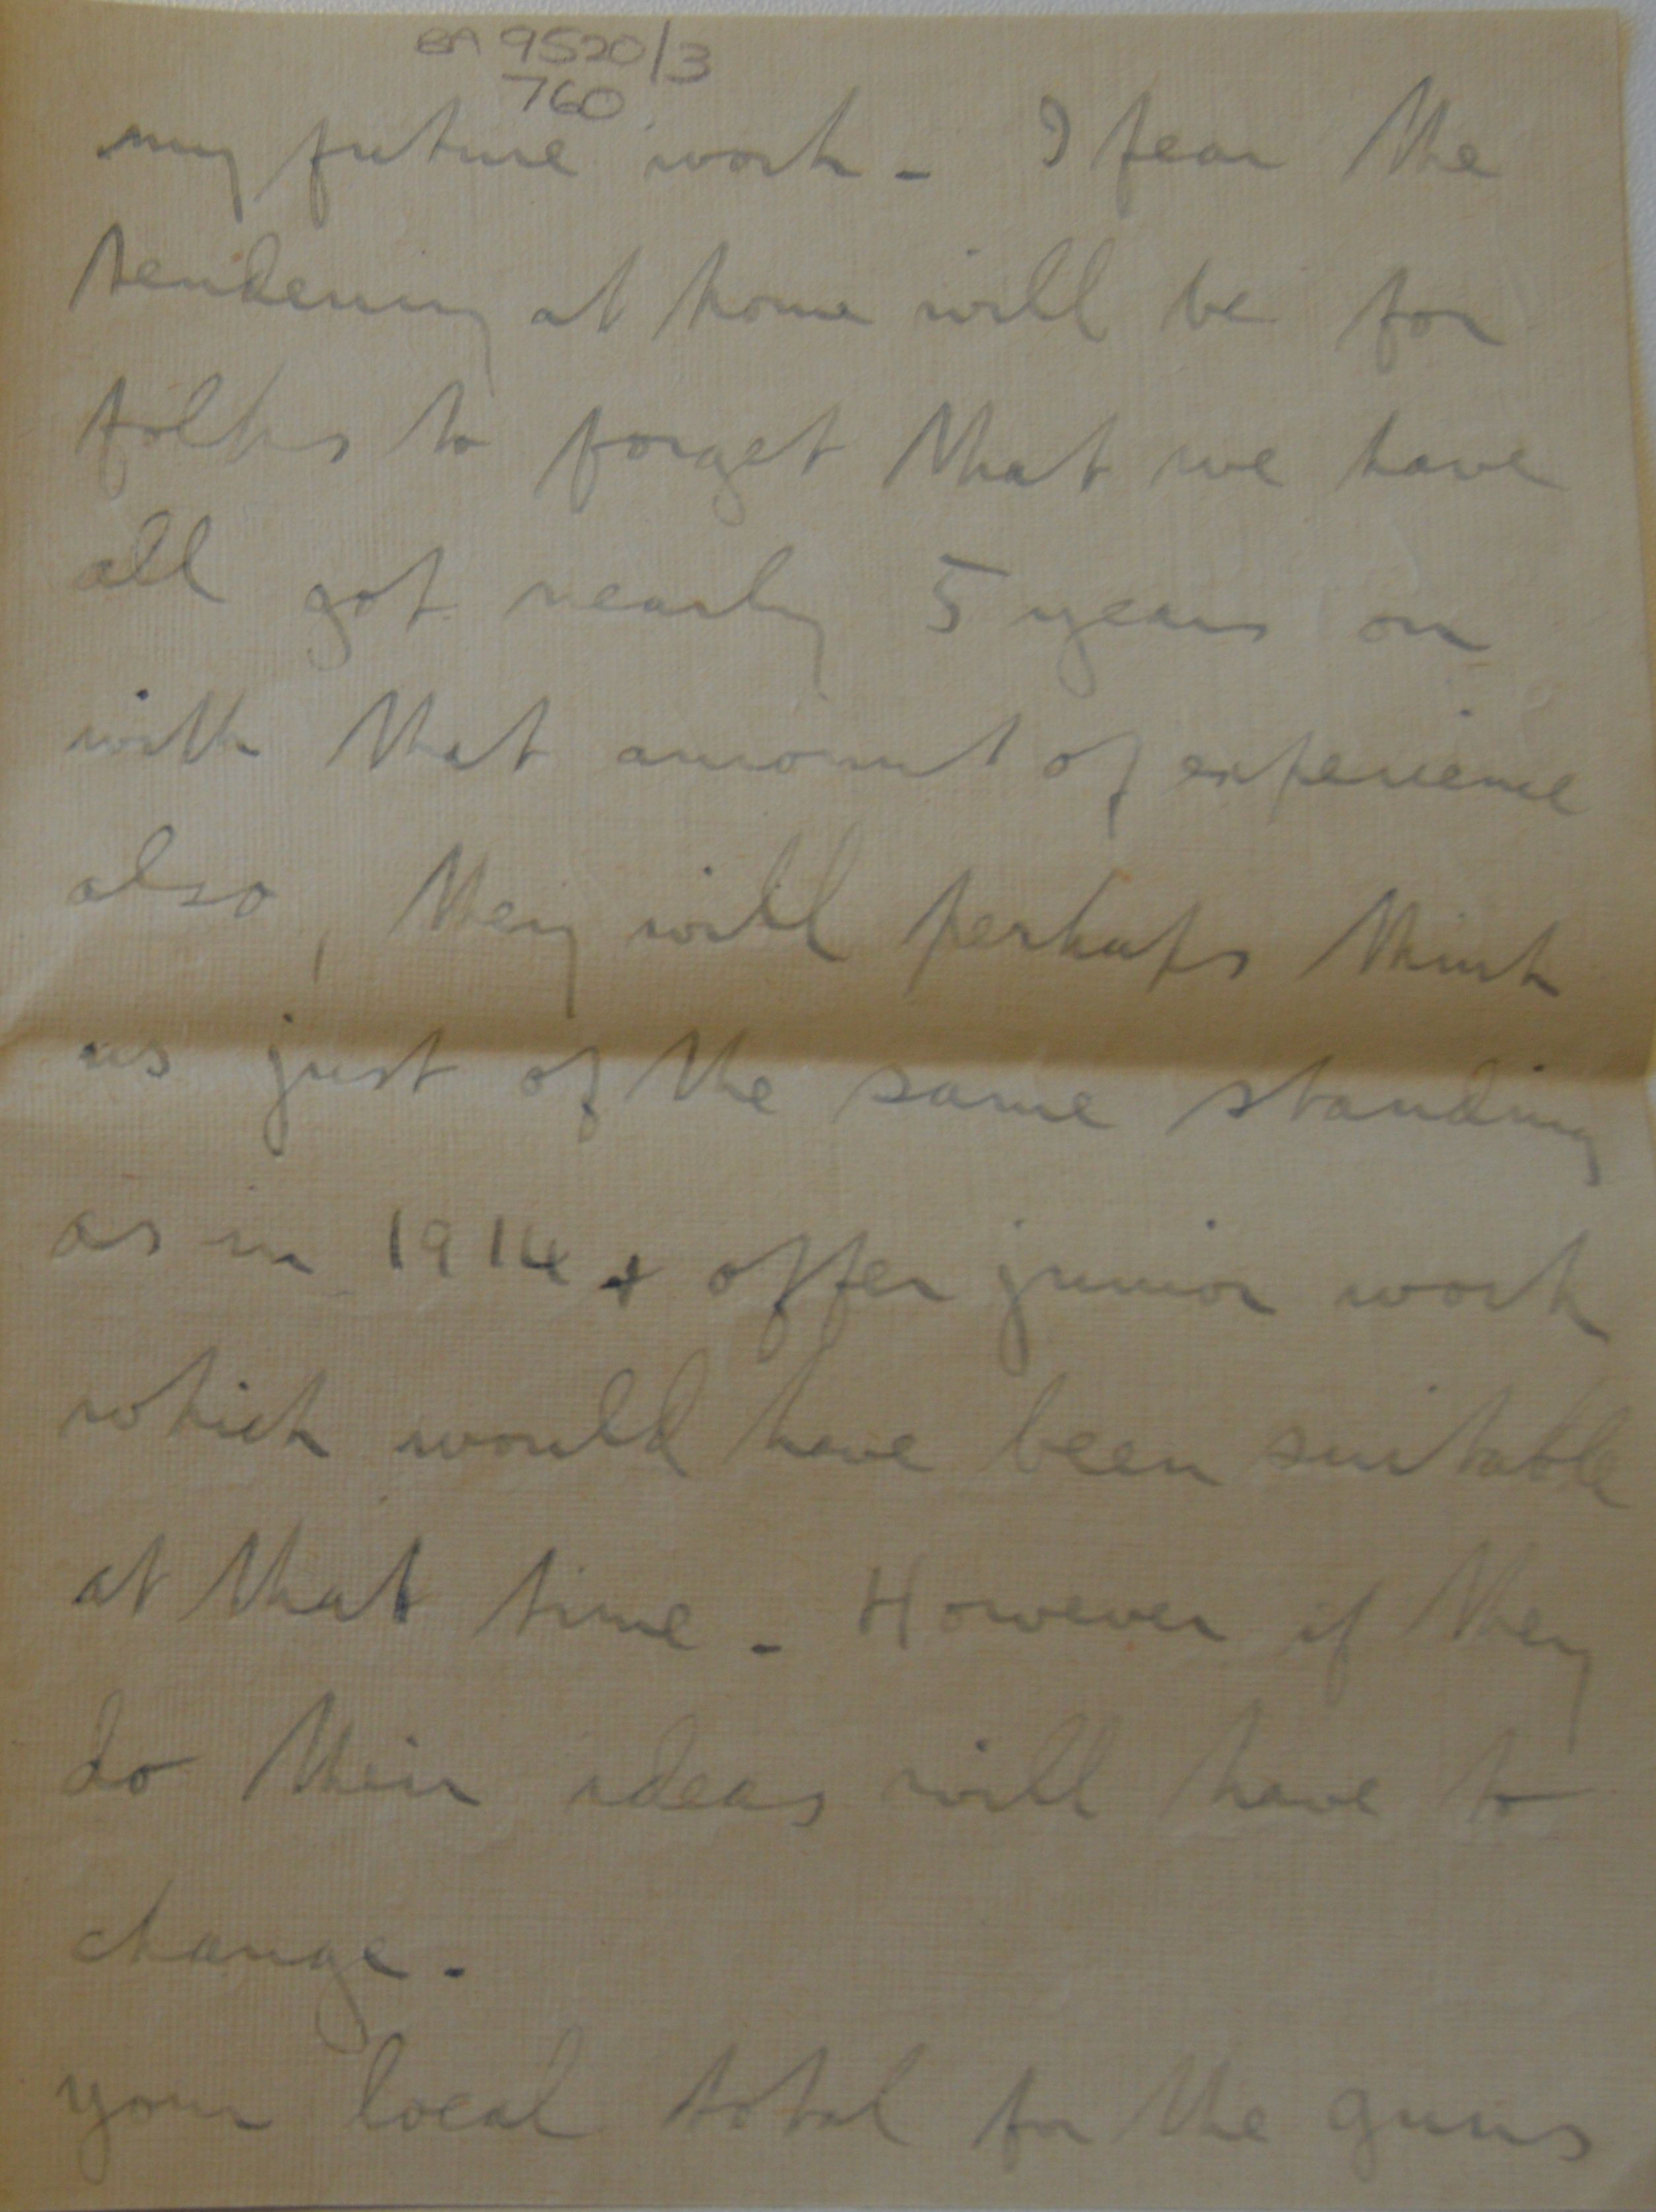 BA 9520/3
760
my future work - I fear the
tendency at home will be for
folks to forget that we have
all got nearly 5 years on
with that amount of experience
also, they will perhaps think
us just of the same standing
as in 1914 & offer junior work
which would have been suitable
at that time - However if they
do their ideas will have to
change.
your local total for the guns